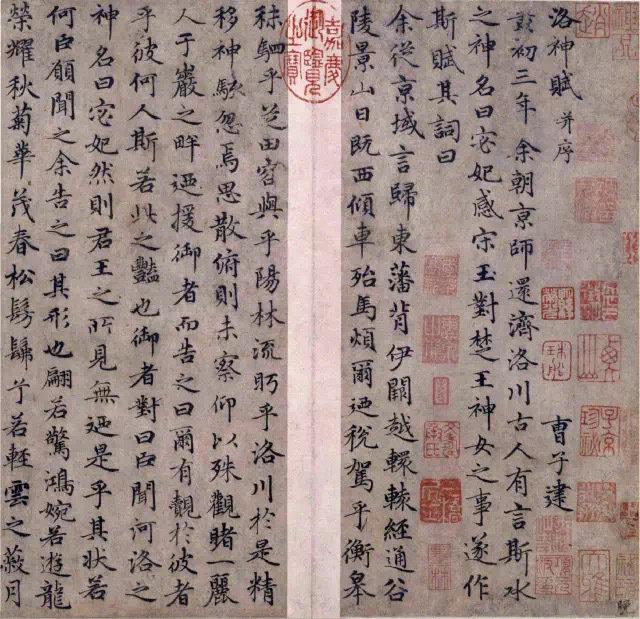 洛神賦 并序 曹子建
黃初三年余朝京師還濟洛川古人有言斯水
之神名曰宓妃感宋玉對楚王神女之事遂作
斯賦其詞曰
余從京域言歸東藩背伊闕越轘轅經通谷
陵景山日既西傾車殆馬煩爾迺稅駕乎衡皋
秣駟乎芝田容與乎陽林流眄乎洛川於是精
移神駭忽焉思散俯則未察仰以殊觀睹一麗
人于巖之畔迺援御者而告之曰爾有覿於彼者
乎彼何人斯若此之豔也御者對曰臣聞河洛之
神名曰宓妃然則君王之所見無迺是乎其狀若
何臣願聞之余告之曰其形也翩若驚鴻婉若遊龍
榮耀秋菊華茂春松髣髴兮若輕雲之蔽月
嘉慶御覽之寶